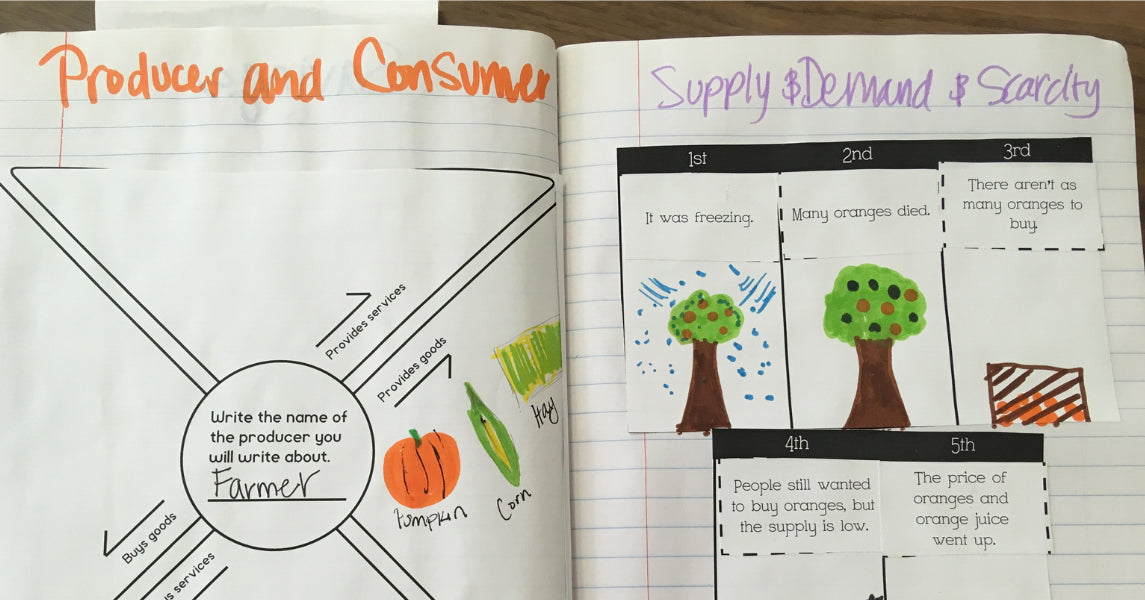 Producer and Consumer
Provides services
Provides goods
Write the name of
the producer you
will write about.
Farmer
Pumpkin
Corn
Hay
Buys goods
services
Supply & Demand & Scarcity
1st
2nd
3rd
It was freezing.
Many oranges died.
There aren't as
many oranges to
buy.
4th
5th
People still wanted
to buy oranges, but
the supply is low.
The price of
oranges and
orange juice
went up.